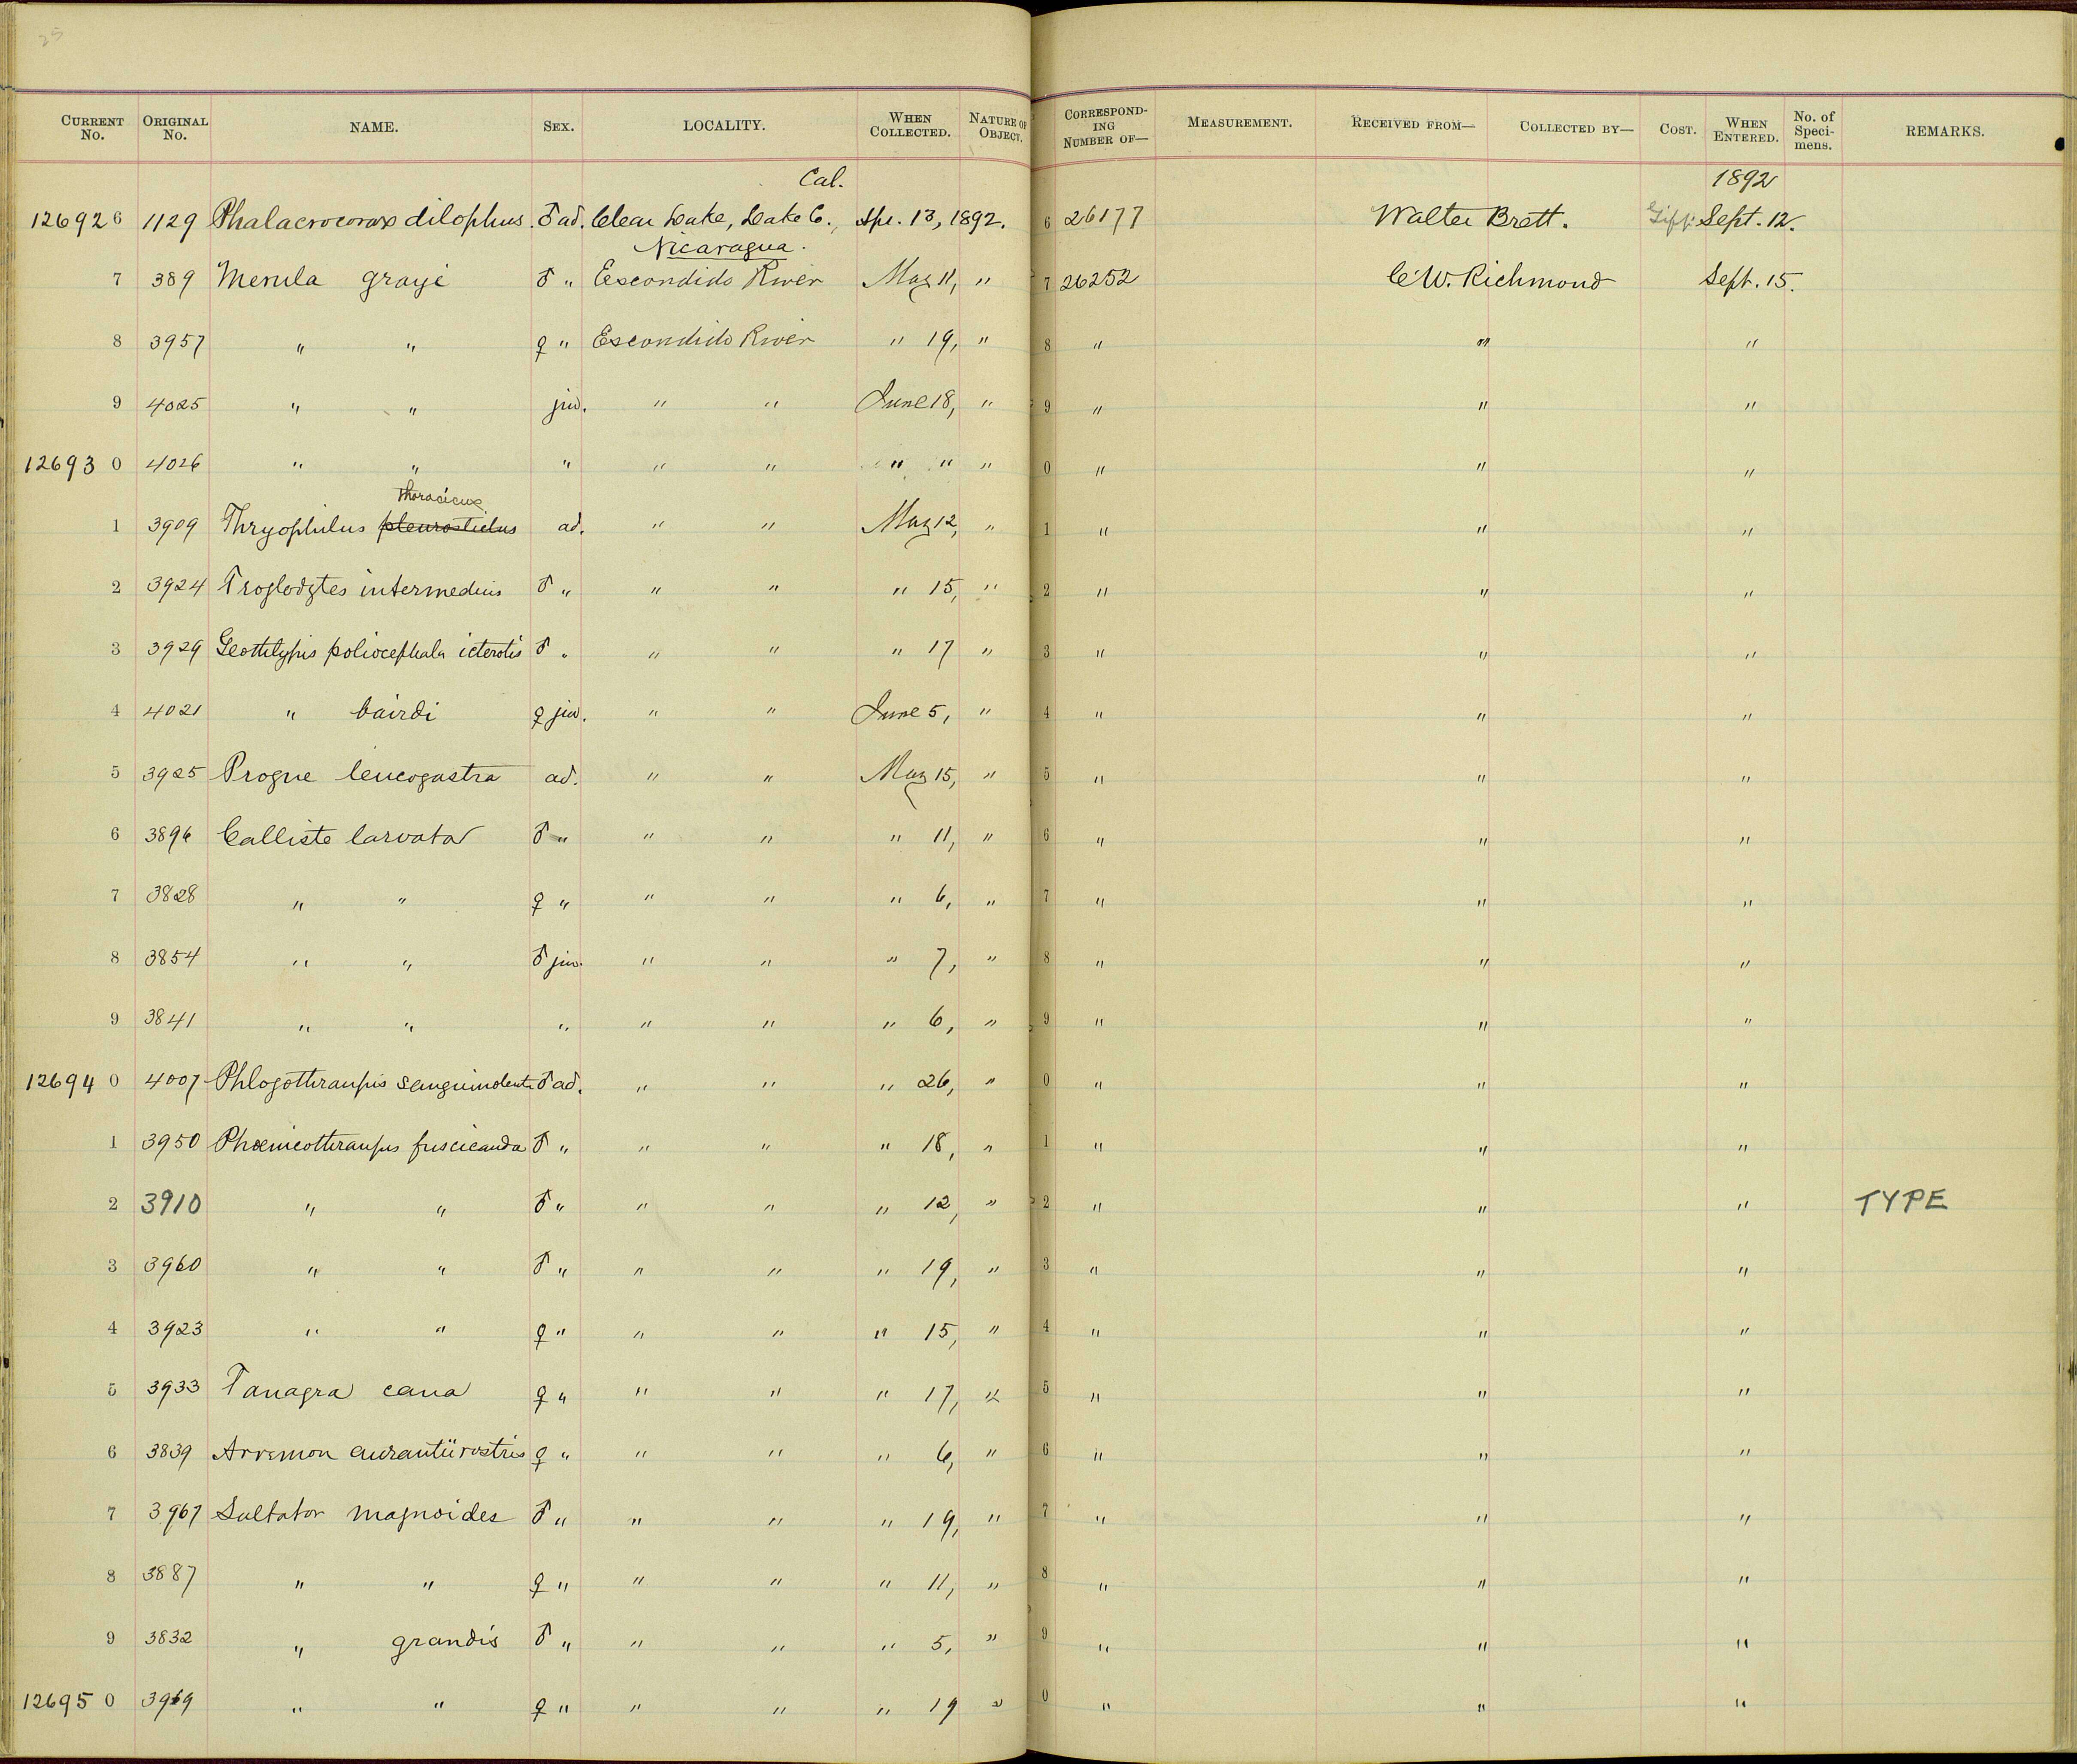 25
CURRENT No. ORIGINAL No. NAME. SEX. LOCALITY. WHEN COLLECTED. NATURE OF OBJECT. CORRESPONDING NUMBER OF— MEASUREMENT. RECEIVED FROM— COLLECTED BY— COST. WHEN ENTERED. No. of Specimens. REMARKS.
Cal. 1892
12692 6 1129 Phalacrocorax dilophus. ♂ ad. Clear Lake, Lake Co., Apr. 13, 1892. 6 26177 Walter Brett. Gift Sept. 12.
Nicaragua.
7 389 Merula grayi ♂ " Escondido River May 11, " 7 26252 C.W. Richmond Sept. 15.
8 3957 " " ♀ " Escondido River " 19, " 8 " " "
9 4025 " " juv. " " June 18, " 9 " " "
12693 0 4026 " " " " " " " " 0 " " "
thoracicus
1 3909 Thryophilus pleurostictus ad. " " May 12, " 1 " " "
2 3924 Troglodytes intermedius ♂ " " " " 15, " 2 " " "
3 3929 Geothlypis poliocephala icterotis ♂ " " " " 17 " 3 " " "
4 4021 " bairdi ♀ juv. " " June 5, " 4 " " "
5 3925 Progne leucogastra ad. " " May 15, " 5 " " "
6 3896 Calliste larvata ♂ " " " " 11, " 6 " " "
7 3828 " " ♀ " " " " 6, " 7 " " "
8 3854 " " ♂ juv. " " " 7, " 8 " " "
9 3841 " " " " " " 6, " 9 " " "
12694 0 4007 Phlogothraupis sanguinolenta ♂ ad. " " " 26, " 0 " " "
1 3950 Phœnicothraupis fuscicauda ♂ " " " " 18, " 1 " " "
2 3910 " " ♂ " " " " 12, " 2 " " " TYPE
3 3960 " " ♂ " " " " 19, " 3 " " "
4 3923 " " ♀ " " " " 15, " 4 " " "
5 3933 Tanagra cana ♀ " " " " 17, " 5 " " "
6 3839 Arremon aurantiirostris ♀ " " " " 6, " 6 " " "
7 3967 Saltator magnoides ♂ " " " " 19, " 7 " " "
8 3887 " " ♀ " " " " 11, " 8 " " "
9 3832 " grandis ♂ " " " " 5, " 9 " " "
12695 0 3969 " " ♀ " " " " 19 " 0 " " "